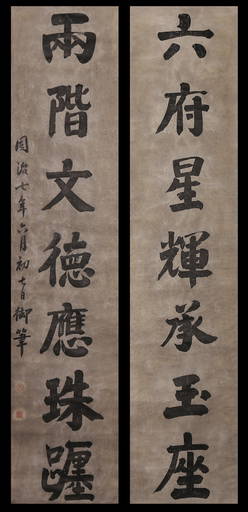 六府星輝承玉座
兩階文德應珠躔
同治七年六月初七日御筆